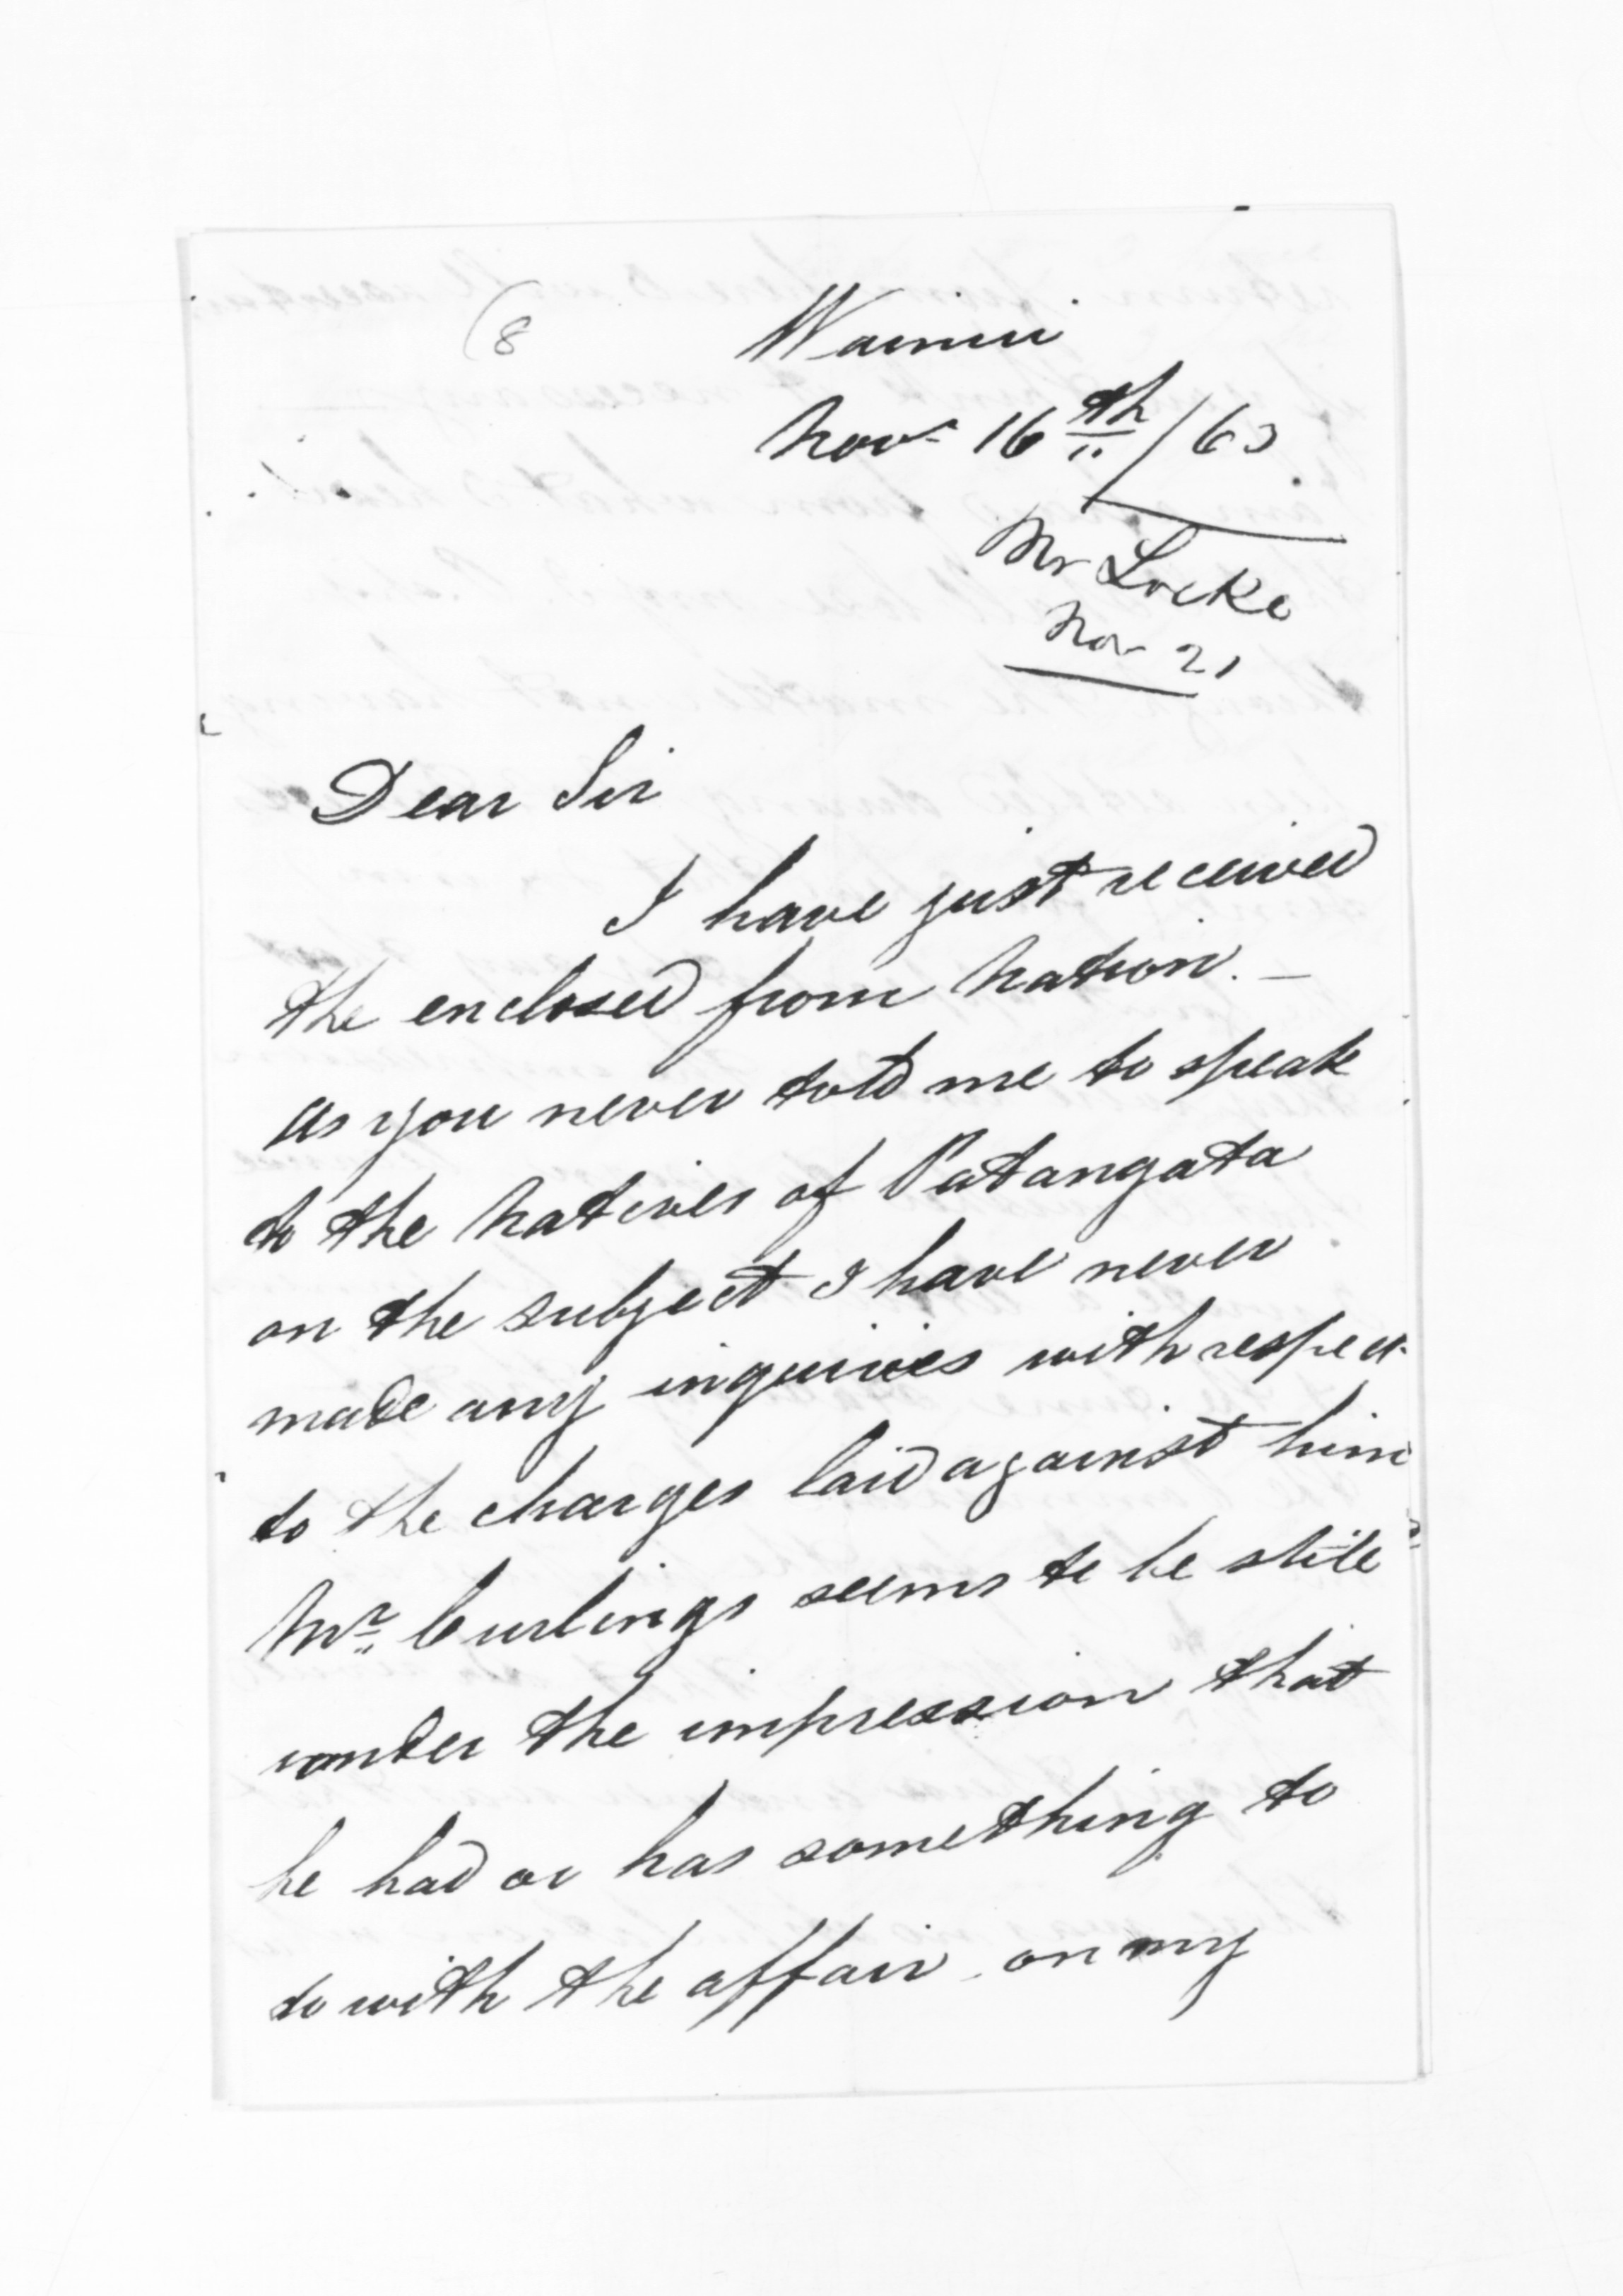 (8
Wainui
Novr 16th/63
Mr Locke
Nov 21
Dear Sir
I have just received
the enclosed from Nation. —
As you never told me to speak
to the Natives of Patangata
on the subject I have never
made any inquiries with respect
to the charges laid against him
Mr. Curlings seems to be still
under the impression that
he had or has something to
do with the affair. on my